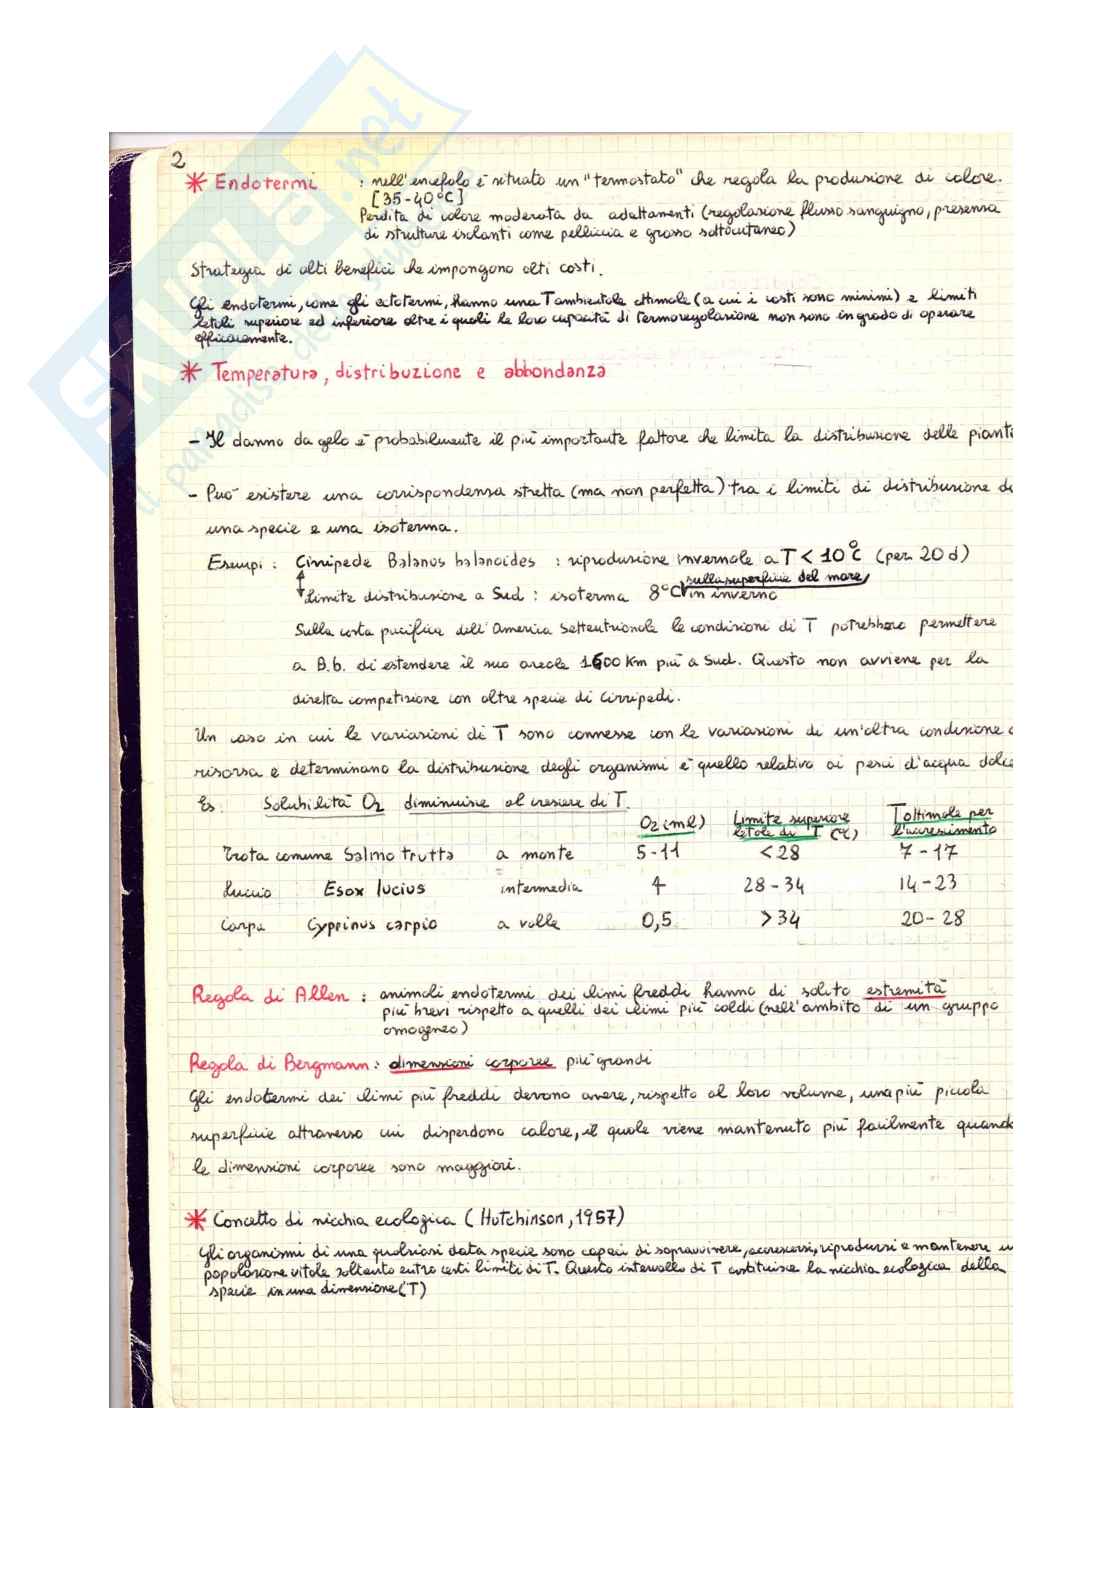 2
* Endotermi : nell'encefalo è situato un "termostato" che regola la produzione di calore.
[35-40°C]
Perdita di calore moderata da adattamenti (regolazione flusso sanguigno, presenza
di strutture isolanti come pelliccia e grasso sottocutaneo)
Strategia di alti benefici che impongono alti costi.
Gli endotermi, come gli ectotermi, hanno una T ambientale ottimale (a cui i costi sono minimi) e limiti
letali superiore ed inferiore oltre i quali le loro capacità di termoregolazione non sono in grado di operare
efficacemente.
* Temperatura, distribuzione e abbondanza
- Il danno da gelo è probabilmente il più importante fattore che limita la distribuzione delle piant
- Può esistere una corrispondenza stretta (ma non perfetta) tra i limiti di distribuzione d
una specie e una isoterma.
Esempi : Cirripede Balanos balanoides : riproduzione invernale a T < 10°C (per 20 d)
sulla superficie del mare
Limite distribuzione a Sud : isoterma 8°C in inverno
Sulla costa pacifica dell'America Settentrionale le condizioni di T potrebbero permettere
a B.b. di estendere il suo areale 1600 Km più a Sud. Questo non avviene per la
diretta competizione con altre specie di cirripedi.
Un caso in cui le variazioni di T sono connesse con le variazioni di un'altra condizione o
risorsa e determinano la distribuzione degli organismi è quello relativo ai pesci d'acqua dolce
Es. Solubilità O2 diminuisce al crescere di T.
O2 (ml) Limite superiore letale di T (°C) T ottimale per l'accrescimento
Trota comune Salmo trutta a monte 5-11 <28 7-17
Luccio Esox lucius intermedia 4 28-34 14-23
Carpa Cyprinus carpio a valle 0,5 >34 20-28
Regola di Allen : animali endotermi dei climi freddi hanno di solito estremità
più brevi rispetto a quelli dei climi più caldi (nell'ambito di un gruppo
omogeneo)
Regola di Bergmann : dimensioni corporee più grandi
Gli endotermi dei climi più freddi devono avere, rispetto al loro volume, una più piccola
superficie attraverso cui disperdono calore, il quale viene mantenuto più facilmente quand
le dimensioni corporee sono maggiori.
* Concetto di nicchia ecologica (Hutchinson, 1957)
Gli organismi di una qualsiasi data specie sono capaci di sopravvivere, accrescersi, riprodursi e mantenere u
popolazione vitale soltanto entro certi limiti di T. Questo intervallo di T costituisce la nicchia ecologica della
specie in una dimensione (T)
SKUOLA.net